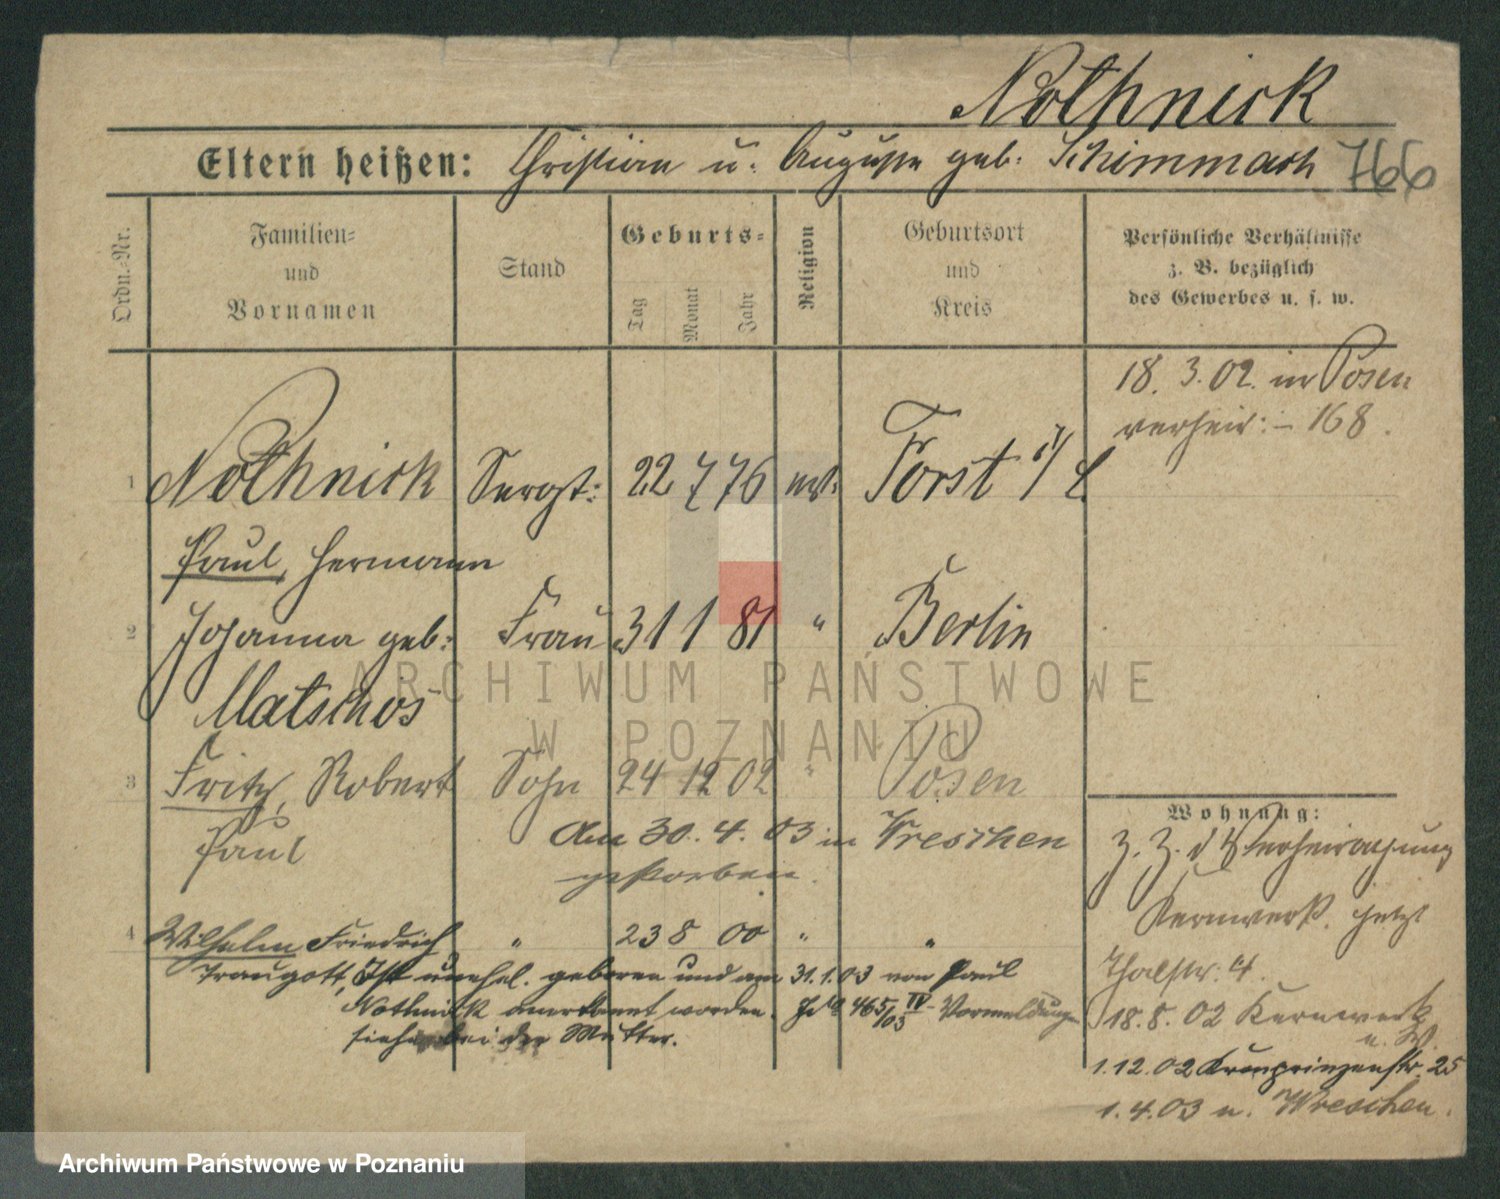 Nothnick
Eltern heißen: Christian u. Auguste geb: Schimmack 766
Ordn.-Nr.
Familien-
und
Vornamen
Stand
Geburts-
Tag
Monat
Jahr
Religion
Geburtsort
und
Kreis
Persönliche Verhältnisse
z. B. bezüglich
des Gewerbes u. s. w.
18. 3. 02. in Posen
verheir: – 168.
1 Nothnick Sergt: 22 7 76 ev: Forst i/L
Paul, Hermann
2 Johanna geb: Frau 31 1 81 " Berlin
Matschos
3 Fritz, Robert Sohn 24 12 02 " Posen
Paul
Am 30. 4. 03 in Wreschen
gestorben.
4 Wilhelm Friedrich " 23 8 00 " "
Traugott, Ist unehel. geboren und am 31.1.03 von Paul
Nothnick anerkannt worden. 465/03 IV Vormeldung
siehe bei der Mutter.
Wohnung:
z. Z. d. Verheirathung
Kernwerk. jetzt
Thalstr: 4.
18. 8. 02 Kernwerk
n. W.
1. 12. 02 Kronprinzenstr. 25
1. 4. 03 n. Wreschen.
ARCHIWUM PAŃSTWOWE
W POZNANIU
Archiwum Państwowe w Poznaniu